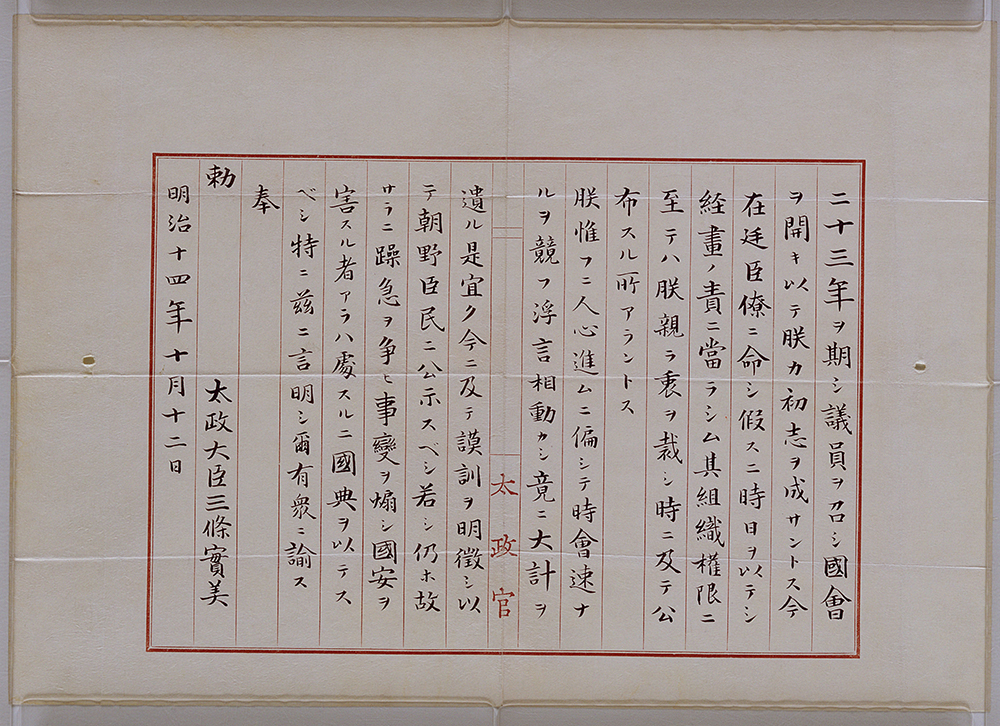 二十三年ヲ期シ議員ヲ召シ國會
ヲ開キ以テ朕カ初志ヲ成サントス今
在廷臣僚ニ命シ假スニ時日ヲ以テシ
経畫ノ責ニ當ラシム其組織權限ニ
至テハ朕親ラ衷ヲ裁シ時ニ及テ公
布スル所アラントス
朕惟フニ人心進ムニ偏シテ時會速ナ
ルヲ競フ浮言相動カシ竟ニ大計ヲ
太政官
遺ル是宜ク今ニ及テ謨訓ヲ明徴シ以
テ朝野臣民ニ公示スベシ若シ仍ホ故
サラニ躁急ヲ争ヒ事變ヲ煽シ國安ヲ
害スル者アラハ處スルニ國典ヲ以テス
ベシ特ニ茲ニ言明シ爾有衆ニ諭ス
奉
勅 太政大臣三條實美
明治十四年十月十二日